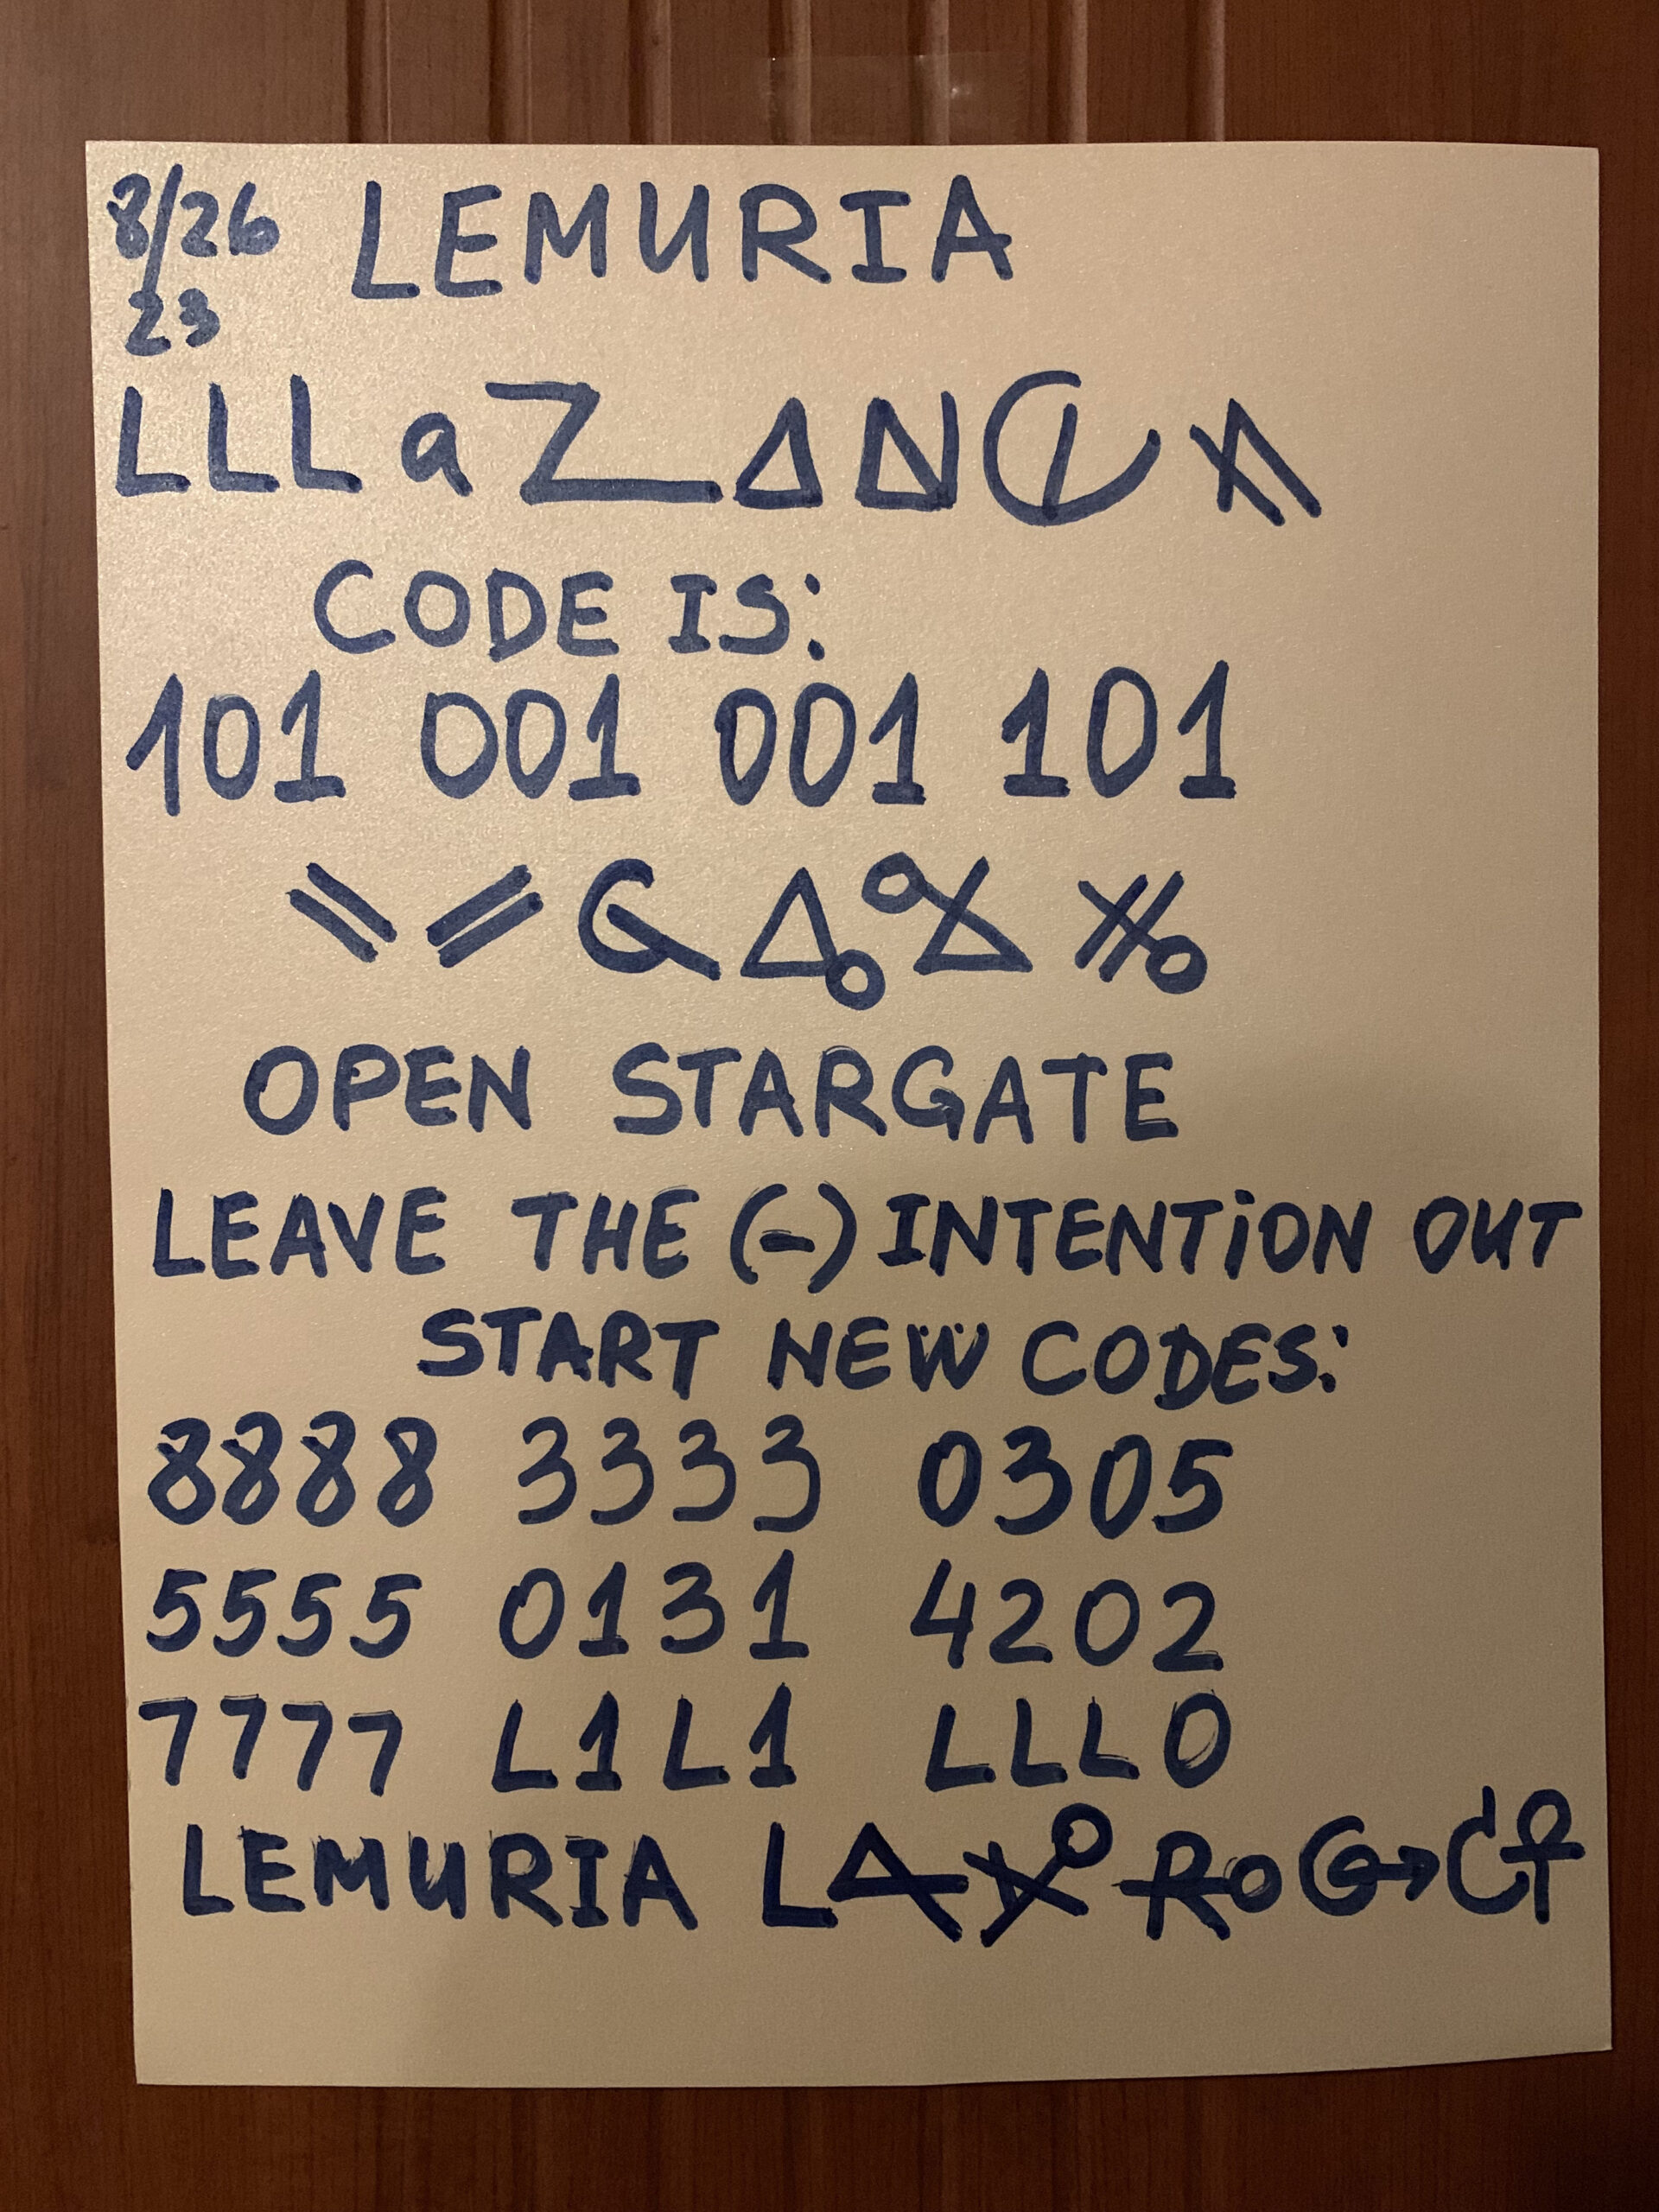 8/26 LEMURIA
23
LLL a Z
CODE IS:
101 001 001 101
OPEN STARGATE
LEAVE THE (-) INTENTION OUT
START NEW CODES:
8888 3333 0305
5555 0131 4202
7777 L1L1 LLL0
LEMURIA L